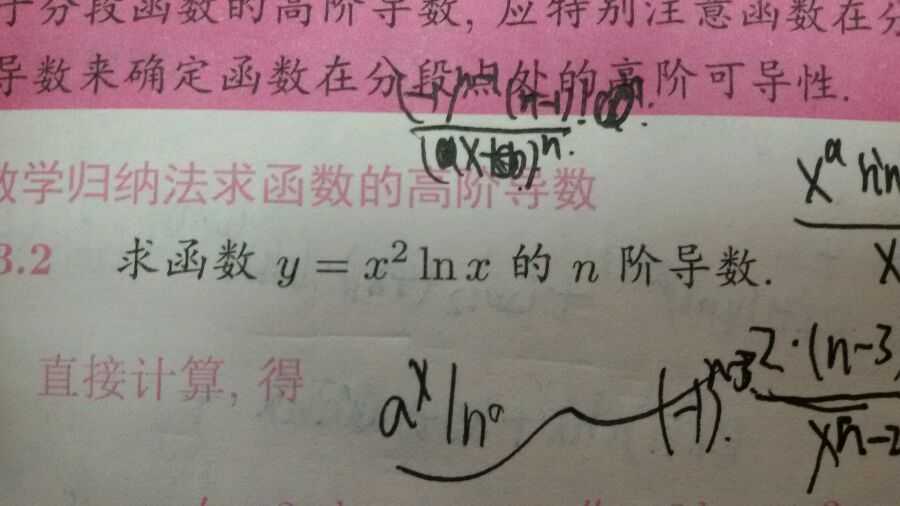 分段函数的高阶导数, 应特别注意函数在分
导数来确定函数在分段点处的高阶可导性.
(-1)ⁿ⁻¹(n-1)!
(ax+b)ⁿ
数学归纳法求函数的高阶导数
3.2 求函数 y = x² ln x 的 n 阶导数.
xᵃ
x
直接计算, 得
aˣ ln a (-1)ⁿ⁻³ 2·(n-3
xⁿ⁻²